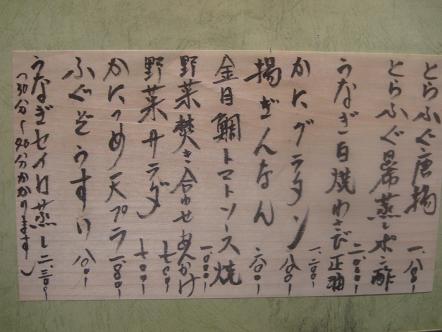 とらふぐ唐揚 一、八〇〇
とらふぐ昆布蒸しポン酢 二、〇〇〇
うなぎ白焼わさび正油 二、二〇〇
かにグラタン 一、八〇〇
揚ぎんなん 六〇〇
金目鯛トマトソース焼 一、〇〇〇
野菜焚き合わせあんかけ 七〇〇
野菜サラダ 七〇〇
かにつめ天プラ 一、八〇〇
ふぐぞうすい 八〇〇
うなぎセイロ蒸し 二、三〇〇
(30分〜40分かかります)